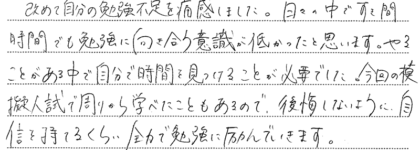 改めて自分の勉強不足を痛感しました。日々の中ですき間
時間でも勉強に向き合う意識が低かったと思います。やる
ことがある中で自分で時間を見つけることが必要でした。今回の模
擬人試で周りから学べたこともあるので、後悔しないように、自
信を持てるくらい全力で勉強に励んでいきます。